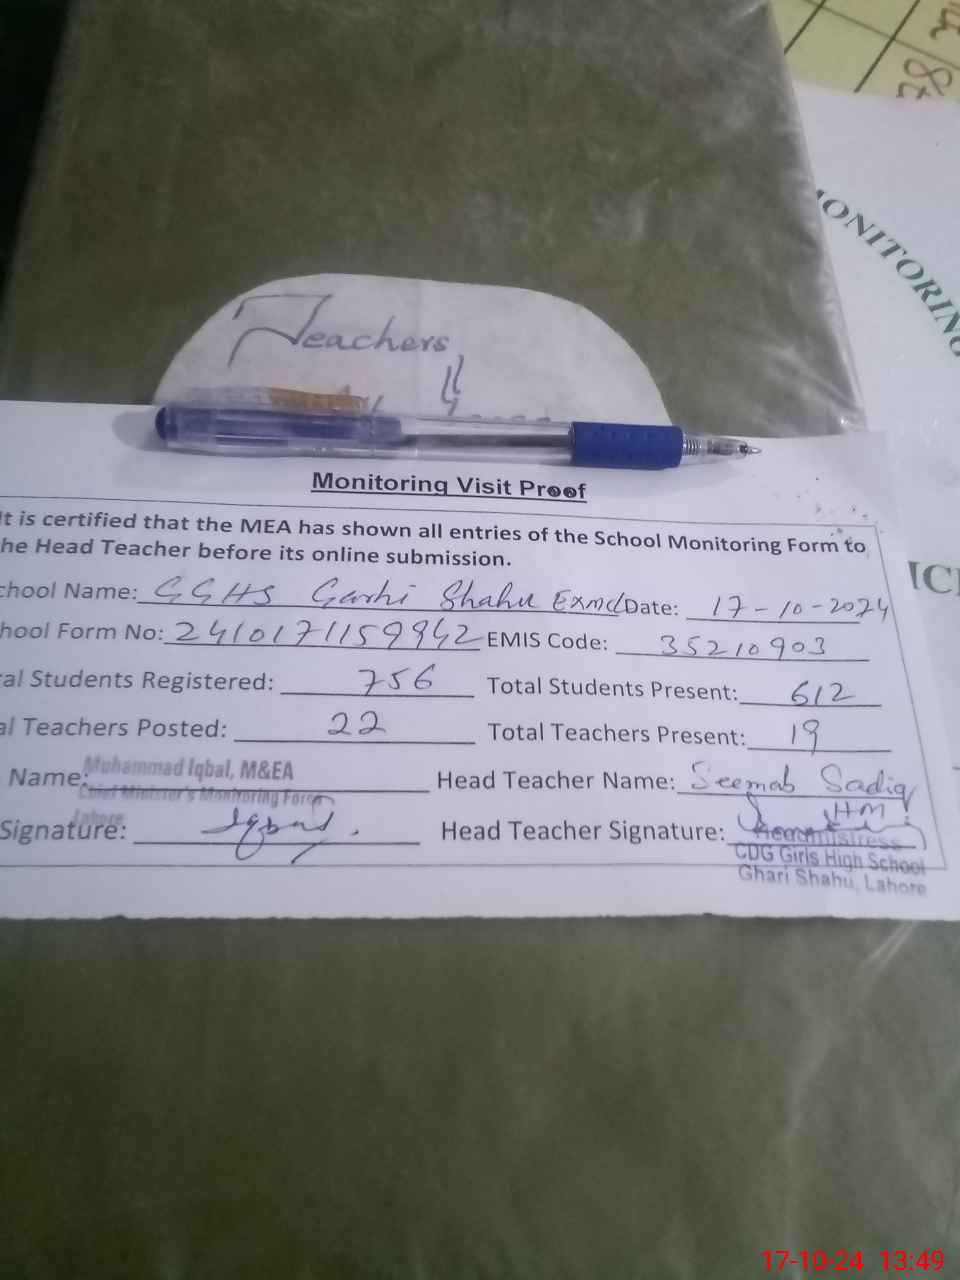 St
ONITORING
Teachers
Monitoring Visit Proof
It is certified that the MEA has shown all entries of the School Monitoring Form to
he Head Teacher before its online submission.
chool Name: GGHS Garhi Shahu Exmcl Date: 17-10-2024
hool Form No: 2410171159942 EMIS Code: 35210903
al Students Registered: 756 Total Students Present: 612
al Teachers Posted: 22 Total Teachers Present: 19
Name: Muhammad Iqbal, M&EA Head Teacher Name: Seemab Sadiq
Chief Minister's Monitoring Force
Lahore
HM
Signature: Iqbal. Head Teacher Signature:
Headmistress
CDG Girls High School
Ghari Shahu, Lahore
17-10-24 13:49